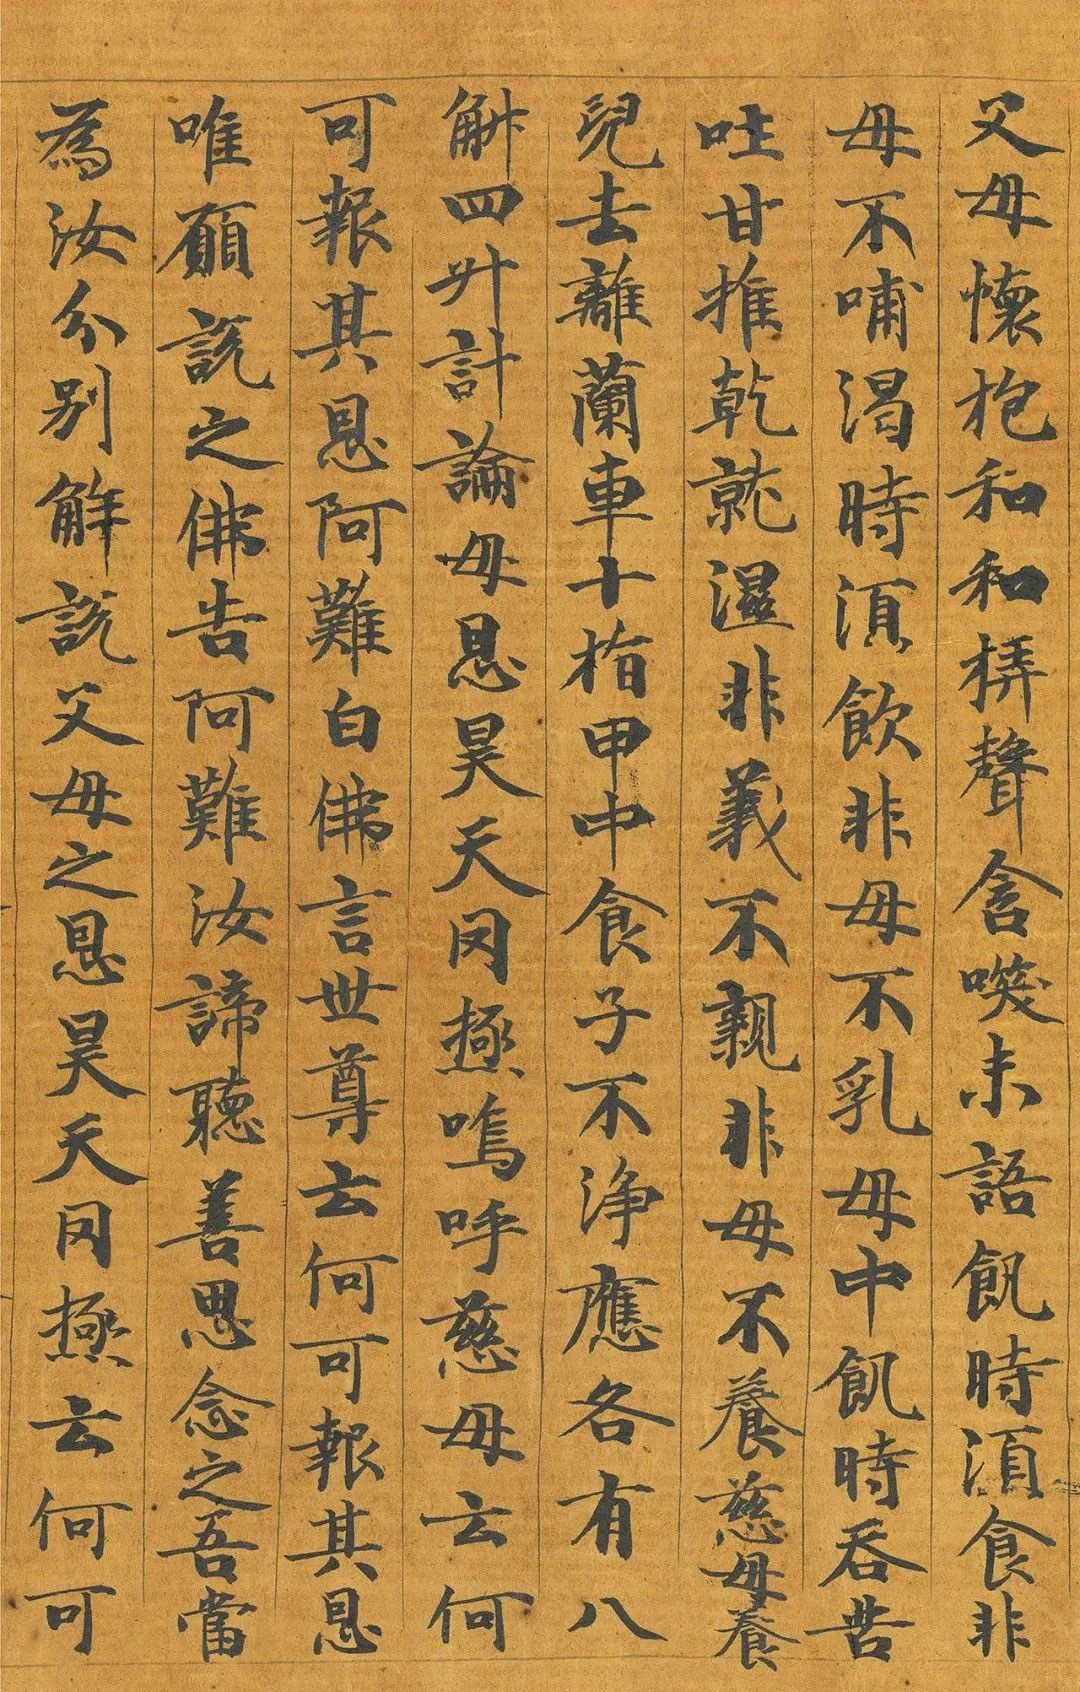 父母懷抱和和棄聲含唉未語飢時須食非
母不哺渴時須飲非母不乳母中飢時吞苦
吐甘推乾就濕非義不親非母不養慈母養
兒去離蘭車十指甲中食子不淨應各有八
斛四升計論母恩昊天罔極嗚呼慈母云何
可報其恩阿難白佛言世尊云何可報其恩
唯願說之佛告阿難汝諦聽善思念之吾當
為汝分別解說父母之恩昊天罔極云何可